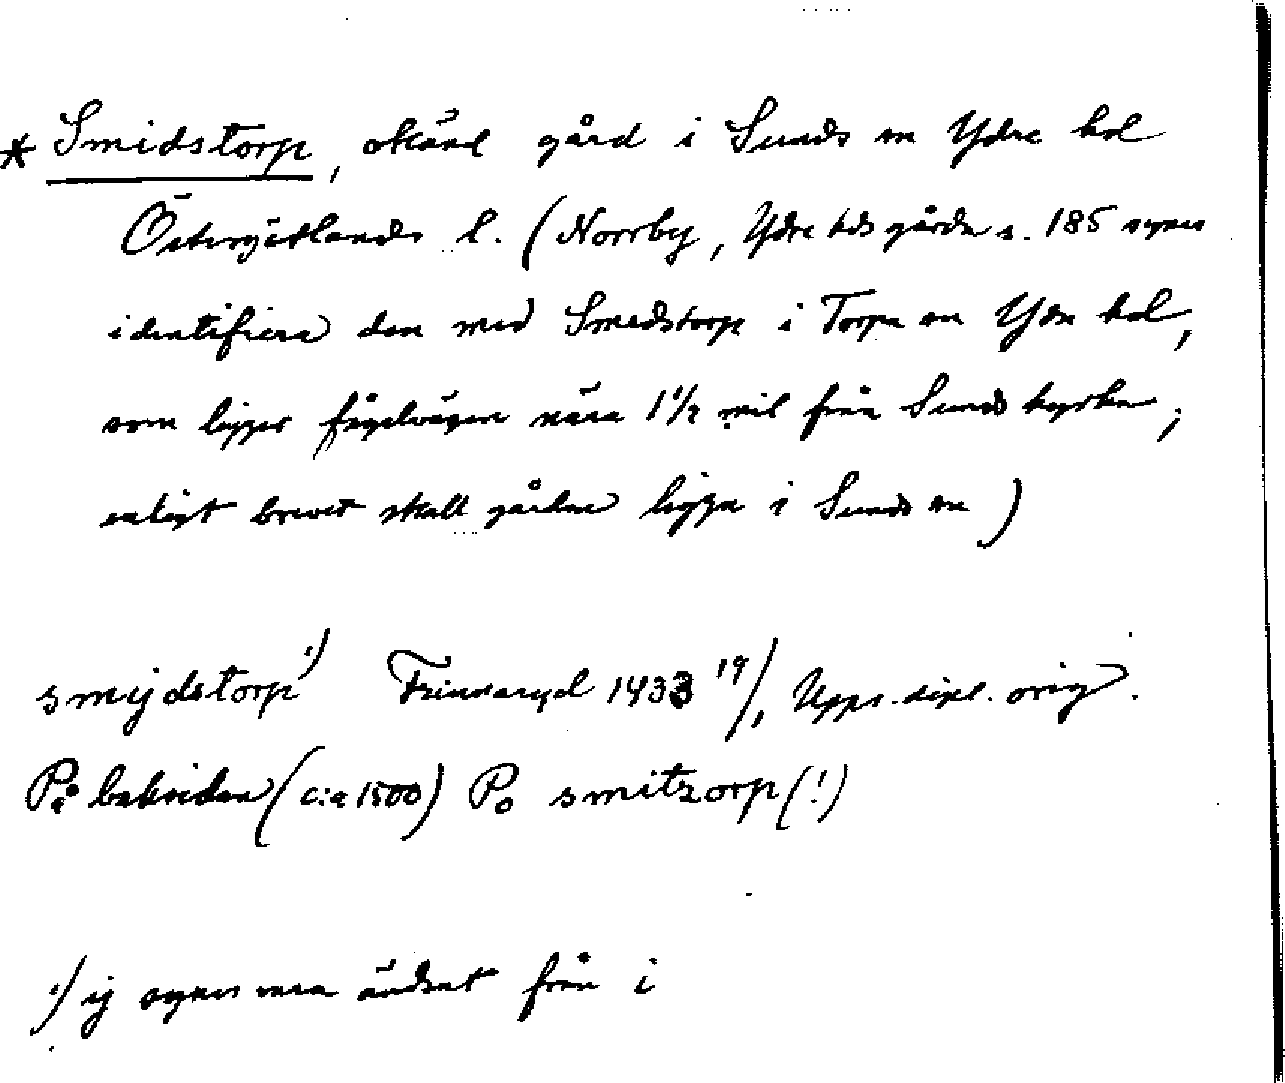 * Smidstorp, okänd gård i Sunds sn Ydre hd
Östergötlands l. (Norrby, Ydre hds gårdar s. 185 synes
identifiera den med Smedstorp i Torpa sn Ydre hd,
som ligger fågelvägen nära 1 1/2 mil från Sunds kyrka;
enligt brevet skall gården ligga i Sunds sn)
smijdstorp 1) Frinnaryd 1433 19/, Upps. dipl. orig.
På baksidan (c:a 1500) Po smitzorp (!)
1) ij synes vara ändrat från i